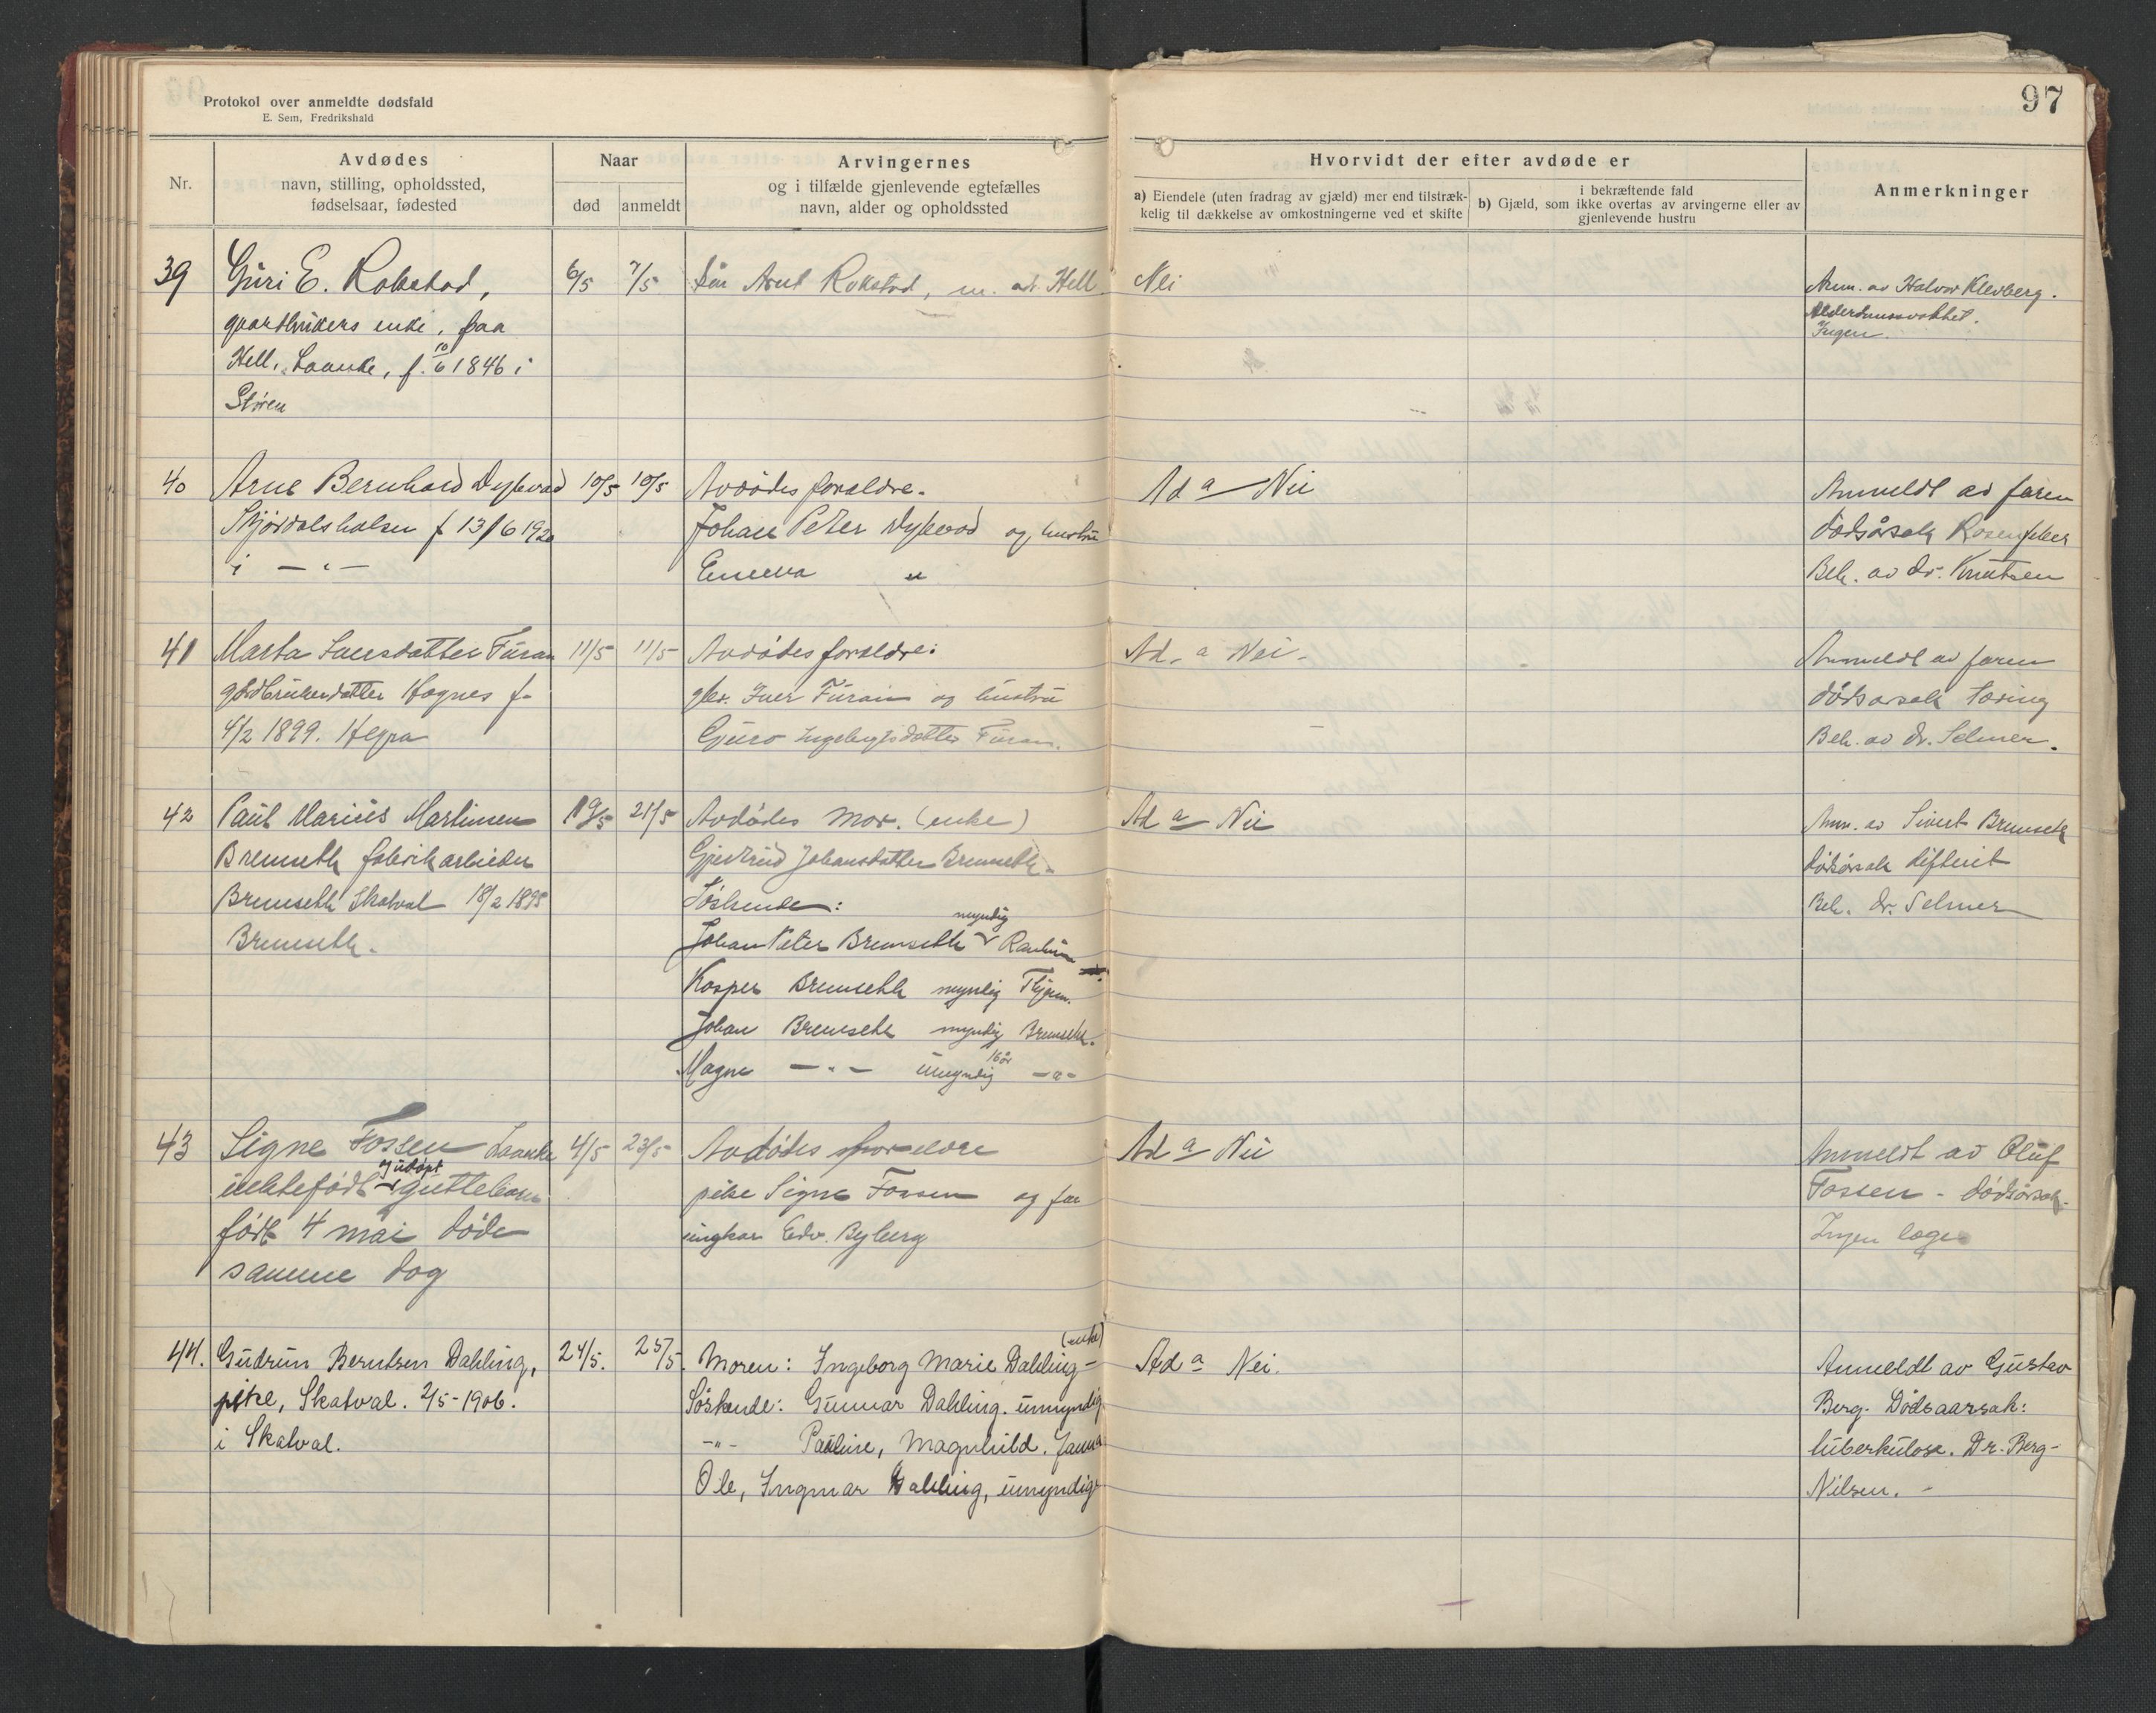 Protokol over anmeldte dødsfald
E. Sem, Fredrikshald
97
Nr.
Avdødes
navn, stilling, opholdssted,
fødselsaar, fødested
Naar
død
anmeldt
Arvingernes
og i tilfælde gjenlevende egtefælles
navn, alder og opholdssted
Hvorvidt der efter avdøde er
a) Eiendele (uten fradrag av gjæld) mer end tilstræk-
kelig til dækkelse av omkostningerne ved et skifte
i bekræftende fald
b) Gjæld, som ikke overtas av arvingerne eller av
gjenlevende hustru
Anmerkninger
39
Guri E. Rokstad,
gaardbrukers enke, paa
Hell, Laanke, f. 10/6 1846 i
Støren
6/5
7/5
Søn Arnt Rokstad, m. ad. Hell
Nei
Anm. av Halvor Klevberg.
Alderdomssvakhet.
Ingen.
40
Arne Bernhard Dybvad
Stjørdalshalsen f 13/6 1920
i - " -
10/5
10/5
Avdødes forældre.
Johan Peter Dybvad og hustru
"
Ad a Nei
Anmeldt av faren
dødsårsak Rosenfeber
Beh. av dr. Knutsen
41
Marta Iversdatter Furan
gårdbrukerdatter Hognes f.
4/2 1899. Hegra
11/5
11/5
Avdødes forældre:
gbr. Iver Furan og hustru
Guro Ingebrigtsdatter Furan.
Ad. a Nei.
Anmeldt av faren
dødsårsak tæring
Beh. av dr. Selmer.
42
Paul Marius Martinsen
Bremseth fabrikarbeider
Bremseth Skatval 18/2 1895
Bremseth.
19/5
21/5
Avdødes mor. (enke)
Gjertrud Johansdatter Bremseth.
Søskende:
Johan Peter Bremseth myndig
Kasper Bremseth myndig
Johan Bremseth myndig Bremseth.
Magne - " - umyndig 16 år - " -
Ad a Nei
Anm. av Sivert Bremseth
dødsårsak difterit
Beh. dr. Selmer
43
Signe Fossen Laanke
uektefødt og udøpt guttebarn
født 4 mai døde
samme dag
4/5
23/5
Avdødes forældre
pike Signe Fossen og far
ungkar Edv. Byberg
Ad a Nei
Anmeldt av Oluf
Fossen - dødsårsak
Ingen læge
44.
Gudrun Berntsen Dahling,
pike, Skatval. 2/5-1906.
i Skatval.
24/5.
25/5.
Moren: Ingeborg Marie Dahling (enke) -
Søskende: Gunnar Dahling. umyndig
-"- Pauline, Magnhild, Janna
Ole, Ingmar Dahling, umyndige
Ad a Nei.
Anmeldt av Gustav
Berg. Dødsaarsak:
tuberkulose. Dr. Berg-
Nilsen. -